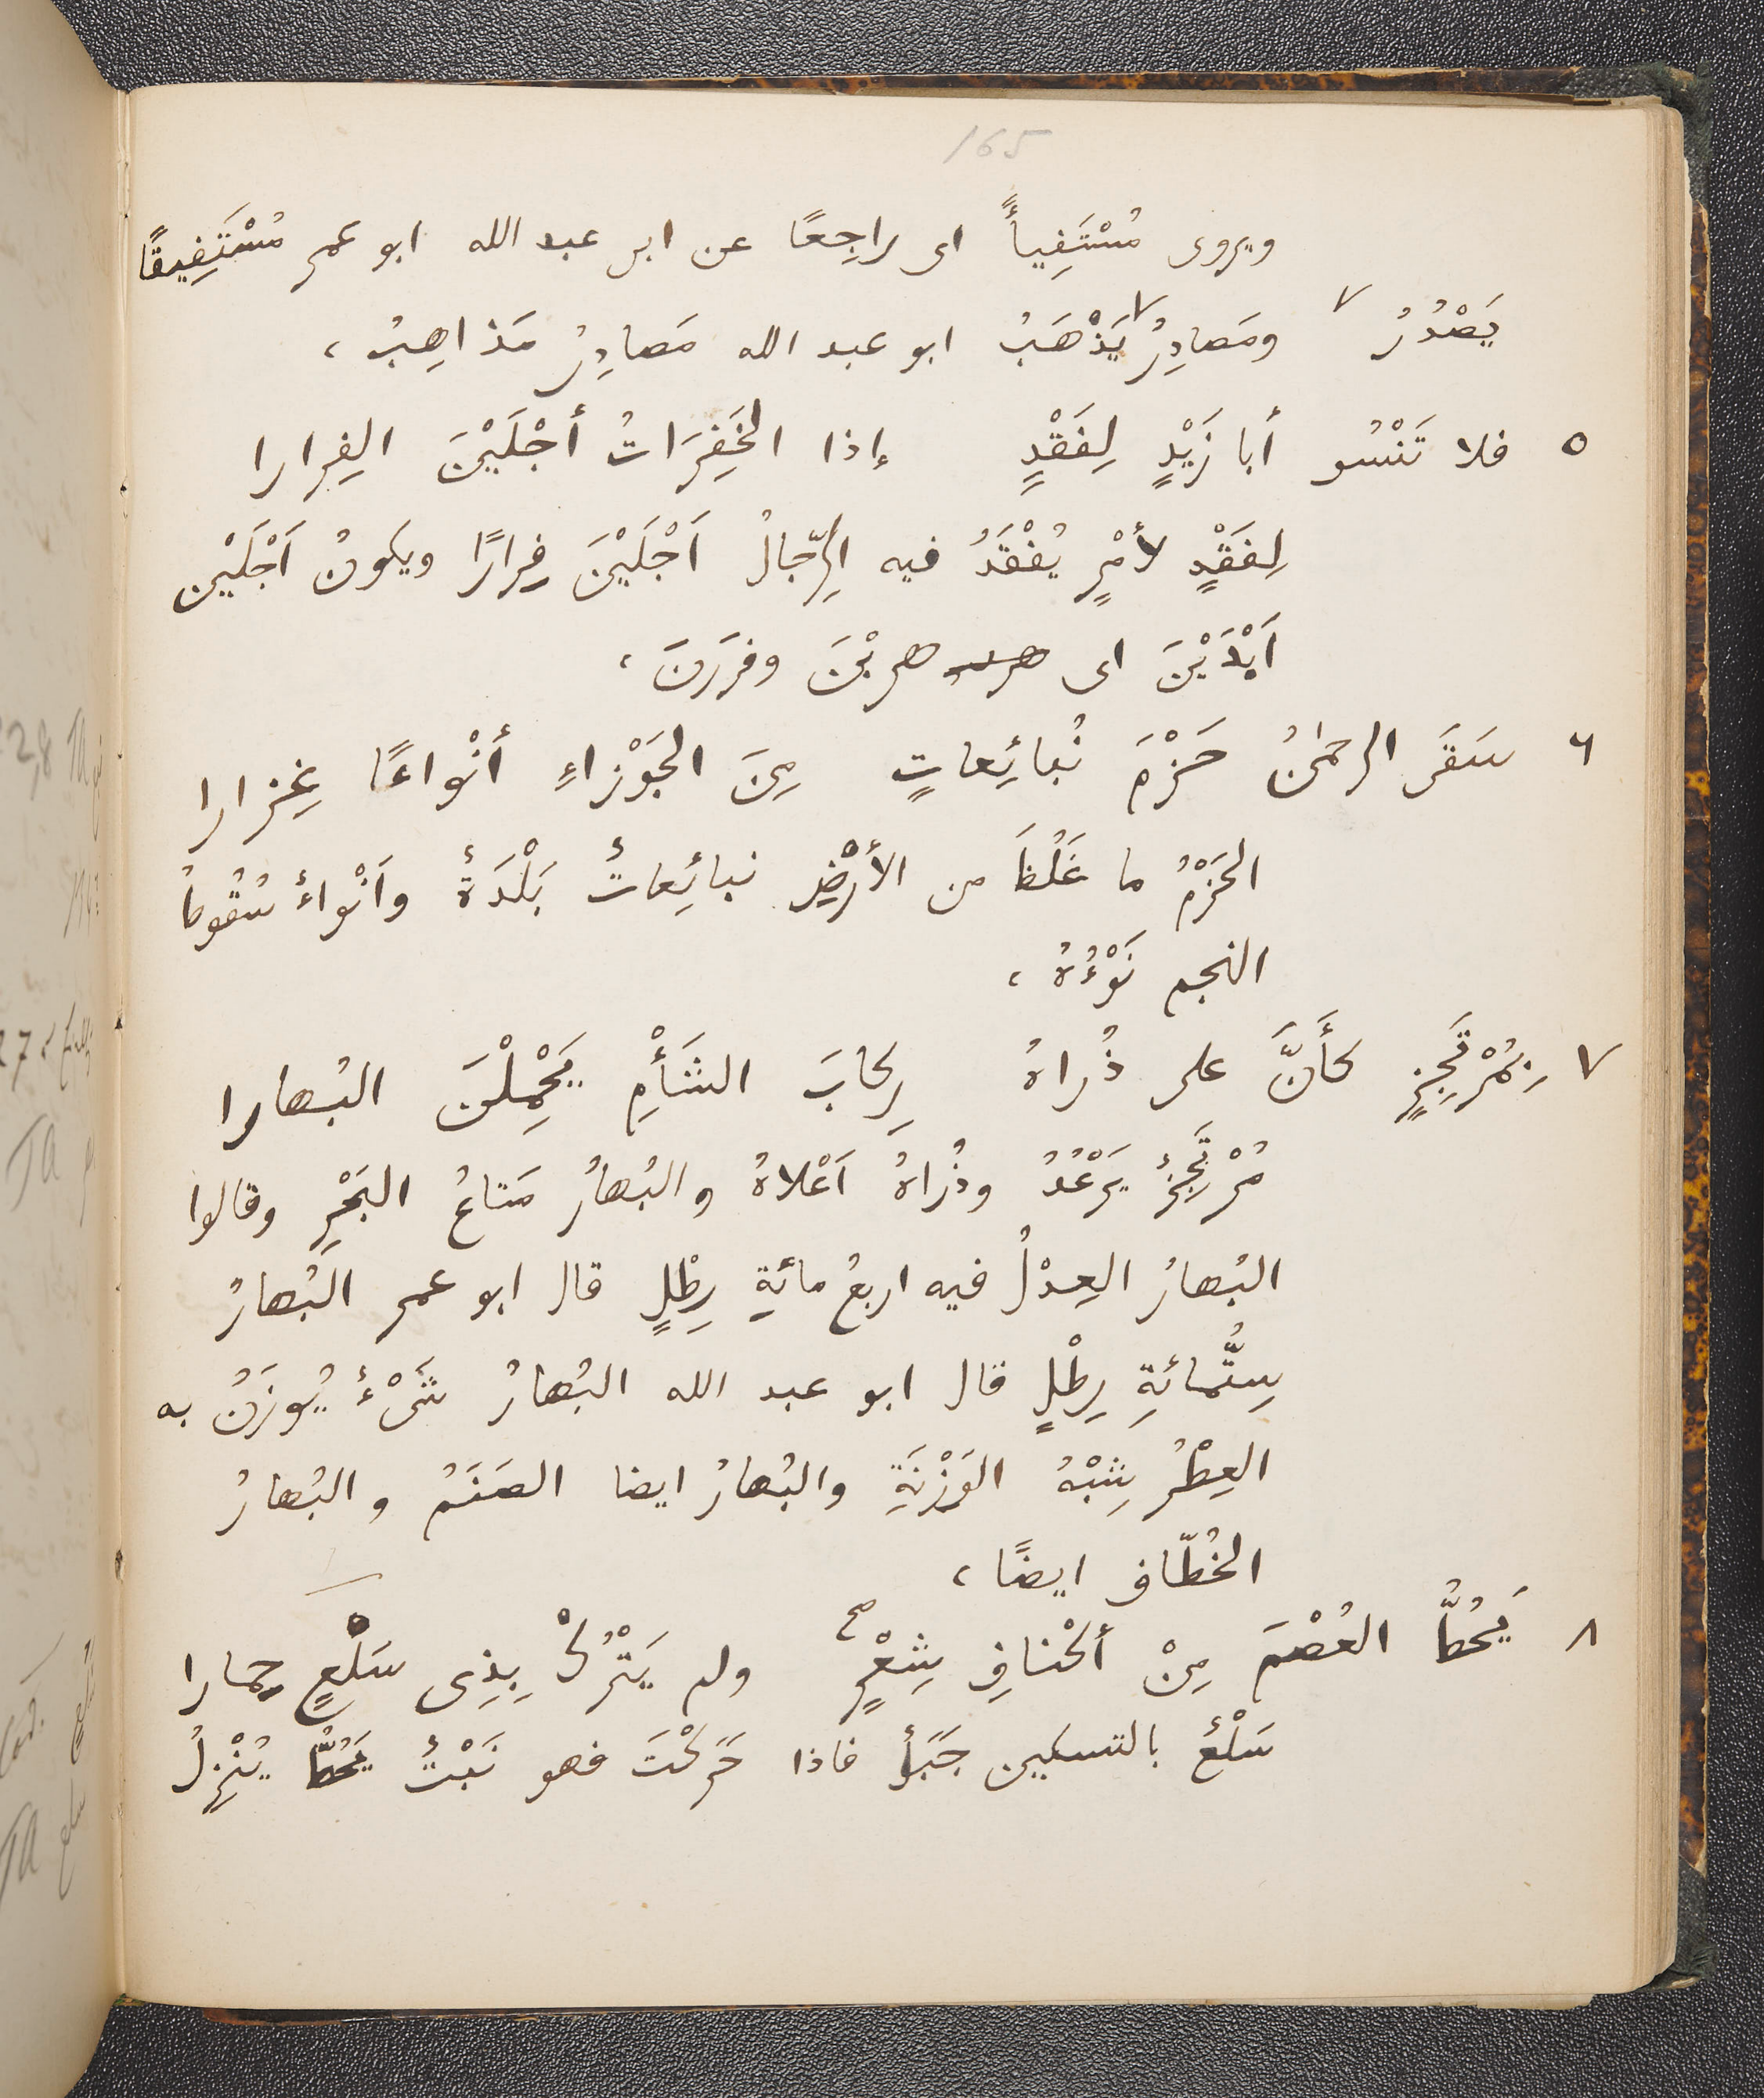 165
ويروى مُسْتَفِيأً اى راجِعًا عن ابى عبد الله ابو عمر مُسْتَفِيقًا
يَصْدُرُ ٧ ومَصادِرُ ٧ يَذْهَبُ ابو عبد الله مَصادِرُ مَذاهِبُ ،
٥ فلا تَنْسُو أبا زَيْدٍ لِفَقْدٍ إذا الخَفِرَاتُ أجْلَيْنَ الفِرارا
لِفَقْدٍ لأمْرٍ يُفْقَدُ فيه الرِّجالُ اَجْلَيْنَ فِرارًا ويكونُ اَجْلَيْن
اَبْدَيْنَ اى هربْنَ وفرَرنَ ،
٦ سَقَى الرحمٰنُ حَزْمَ نُبائِعاتٍ مِنَ الجَوْزاءِ أنْواعًا غِزارا
الحَزْمُ ما غَلُظَ من الأرْضِ نبائِعاتُ بَلْدَةٌ واَنْواءُ سُقُوطُ
النجم نَوْءُهُ ،
٧ بِمُرْتَجِزٍ كأَنَّ على ذُراهُ رِكابَ الشَأْمِ يَحْمِلْنَ البُهارا
مُرْتَجِزٌ يَرْعُدُ وذُراهُ اَعْلاهُ والبُهارُ مَتاعُ البَحْرِ وقالوا
البُهارُ العِدْلُ فيه اربعُ مائةِ رِطْلٍ قال ابو عمر البُهارُ
سِتُّمائةِ رِطْلٍ قال ابو عبد الله البُهارُ شَىْءٌ يُوزَنُ به
العِطْرُ شِبْهُ الوَزْنَةِ والبُهارُ ايضا الصَنَمُ والبُهارُ
الخُطّاف ايضًا ،
٨ يَحُطُّ العُصْمَ مِنْ أكْنافِ شِعْرٍ صح ولم يَتْرُكْ بِذِى سَلْعٍ حِمارا
سَلْعٌ بالتسكين جَبَلٌ فاذا حَرَّكْتَ فهو نَبْتٌ يَحُطُّ يُنْزِلُ